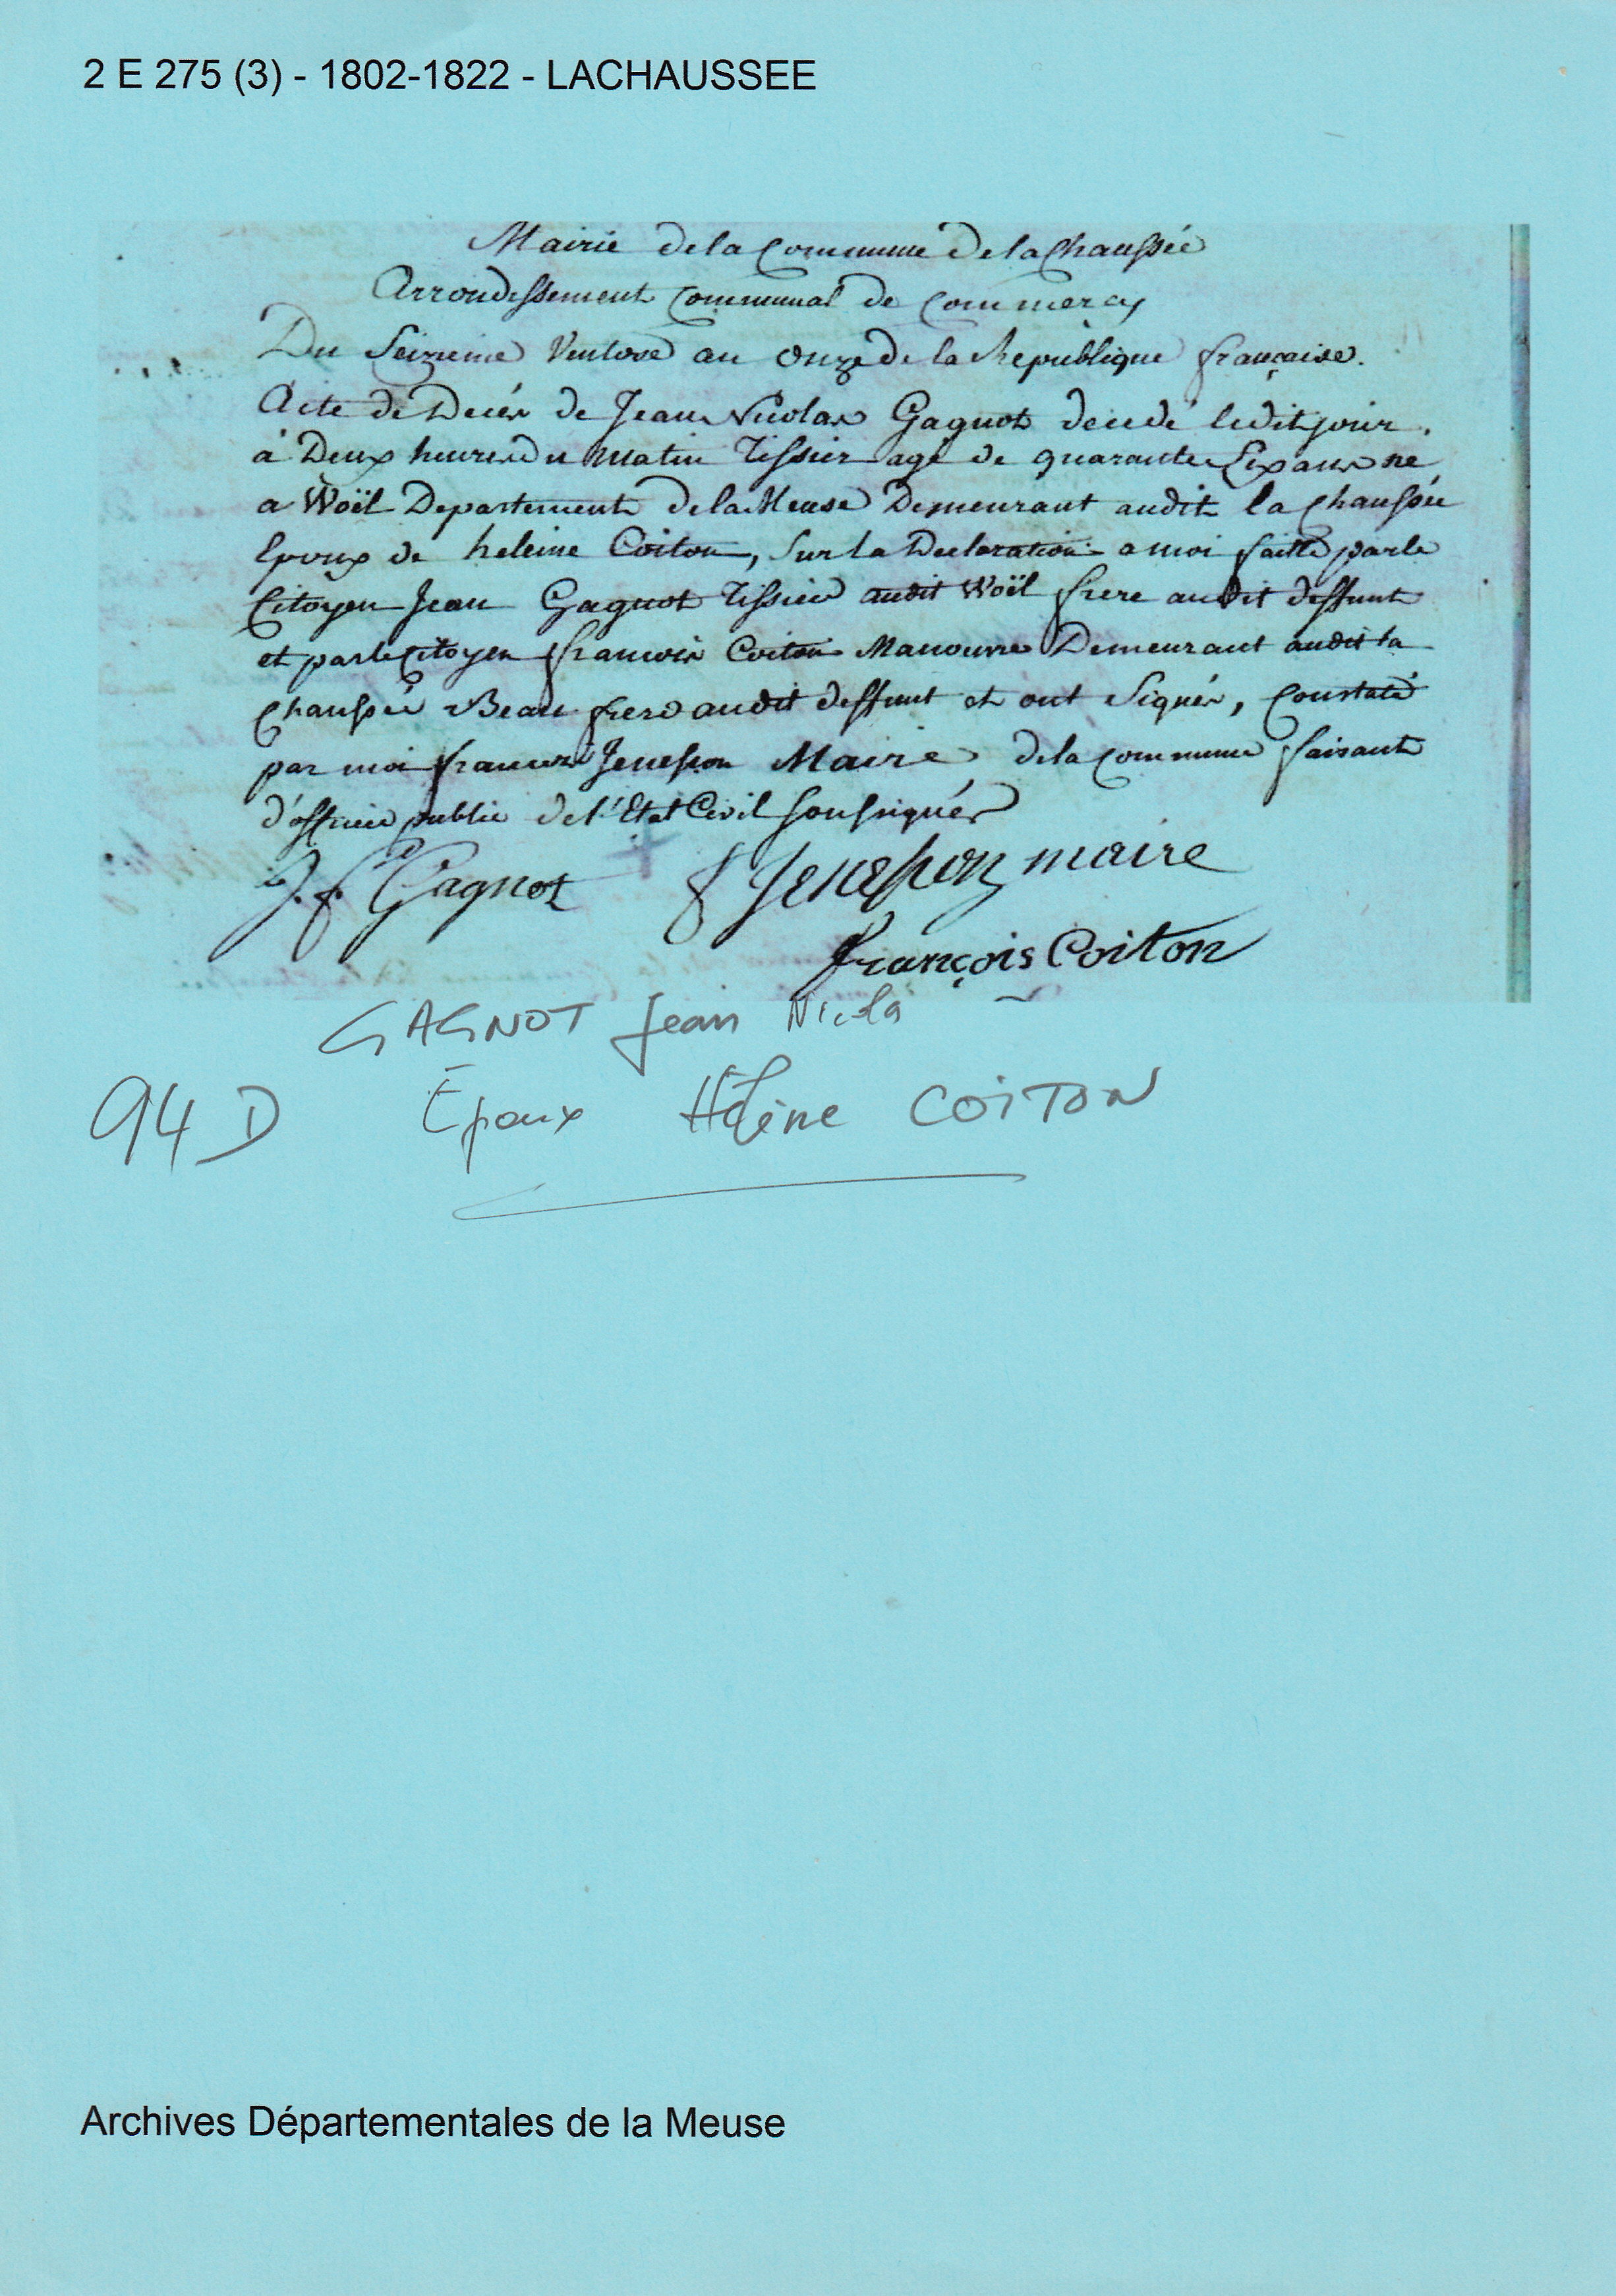 2 E 275 (3) - 1802-1822 - LACHAUSSEE
Mairie de la Commune de la Chaussée
Arrondissement Communal de Commercy
Du Seizieme Ventose an onze de la Republique française.
Acte de Decés de Jean Nicolas Gagnot decedé ledit jour.
à Deux heures du Matin Tissier agé de quarante Six ans né
a Woël Departement de la Meuse Demeurant audit la Chaussée
Epoux de heleine Coiton, Sur la Declaration a moi faitte par le
Citoyen Jean Gagnot Tissier audit Woël frere audit deffunt
et par le Citoyen francois Coiton Manouvre Demeurant audit la
Chaussée Beau frere audit deffunt et ont Signés, Constaté
par moi francois Jenesson Maire de la Commune faisant
d'officié public de l'Etat Civil Soussignés
J. f. Gagnot f Jenesson maire
françois Coiton
GAGNOT Jean Nicolas
94 D Epoux Hélène COITON
Archives Départementales de la Meuse